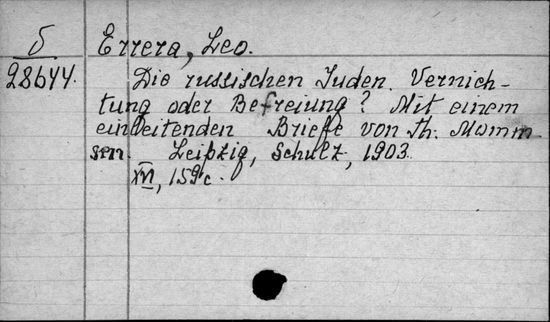 б
28644.
Errera, Leo.
Die russischen Juden. Vernich-
tung oder Befreiung? Mit einem
einleitenden Briefe von Th. Momm
sen. Leipzig, Schulz, 1903.
XVI, 159 c.